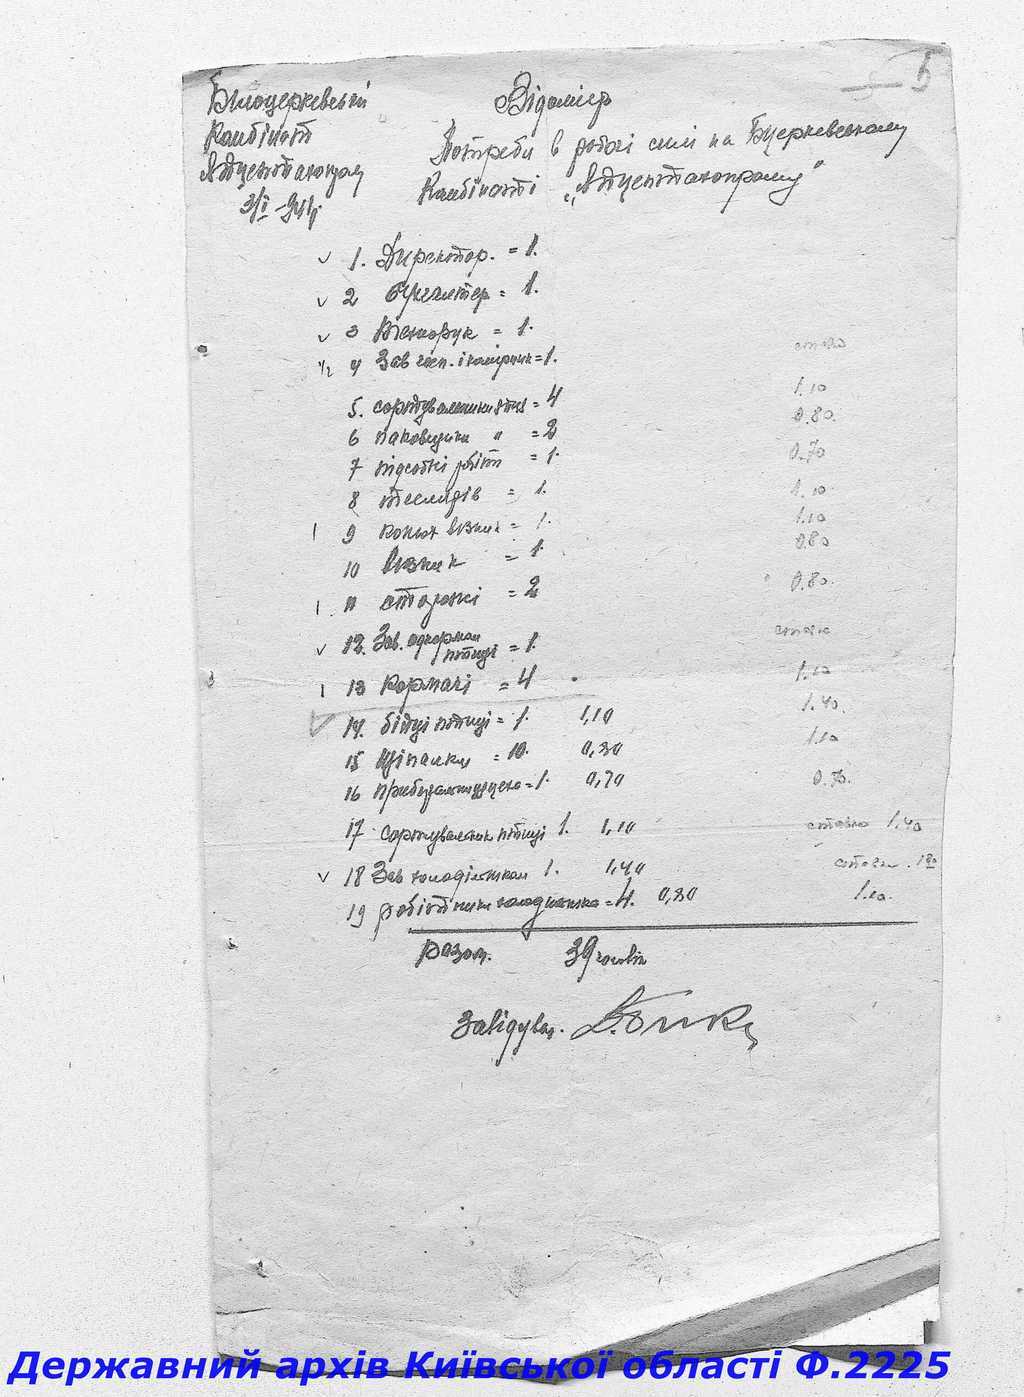 5
Білоцерківський
Комбінат
3/I - 941
Відомість
Потреби в робочі силі на Бцерковському
Комбінаті
1. Директор. = 1.
2 бухгалтер = 1.
3 = 1.
1/2 4 Зав госп. і комірник = 1. ставка
5. сортувальники птиці = 4 1.10
6 паковщики " = 2 0.80.
7 підсобні робіт = 1. 0.70
8 теслярів = 1. 1.10
9 конюх візник = 1. 1.10
10 візник = 1. 0.80
11 сторожі = 2 0.80.
12. Зав. одкормом птиці = 1. ставка
13 кормачі = 4 1.10
14. бійці птиці = 1. 1,10 1.40.
15 щіпалки = 10. 0,80 1.10
16 = 1. 0,70 0.70.
17 сортувальник птиці 1. 1,10 ставка 1.40
18 Зав холодільником 1. 1,40 ставка
19 робітники = 4. 0,80 1.10.
Разом. 39 чоловік
Завідувач.
Державний архів Київської області Ф.2225